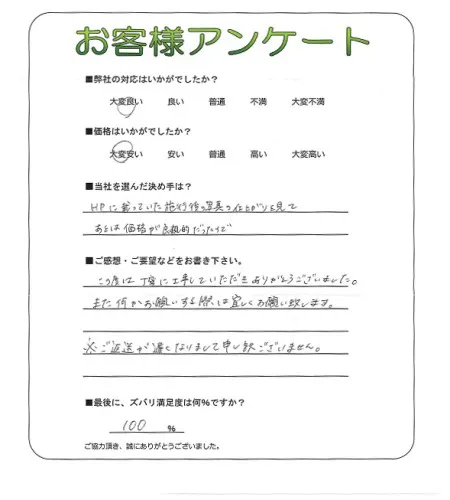 お客様アンケート
■弊社の対応はいかがでしたか？
大変良い 良い 普通 不満 大変不満
■価格はいかがでしたか？
大変安い 安い 普通 高い 大変高い
■当社を選んだ決め手は？
HPに載っていた施行後の写真の仕上がりを見て
あとは価格が良心的だったので
■ご感想・ご要望などをお書き下さい。
この度は丁寧に工事していただきありがとうございました。
また何かお願いする際は宜しくお願い致します。
※ご返送が遅くなりまして申し訳ございません。
■最後に、ズバリ満足度は何%ですか？
100 %
ご協力頂き、誠にありがとうございました。